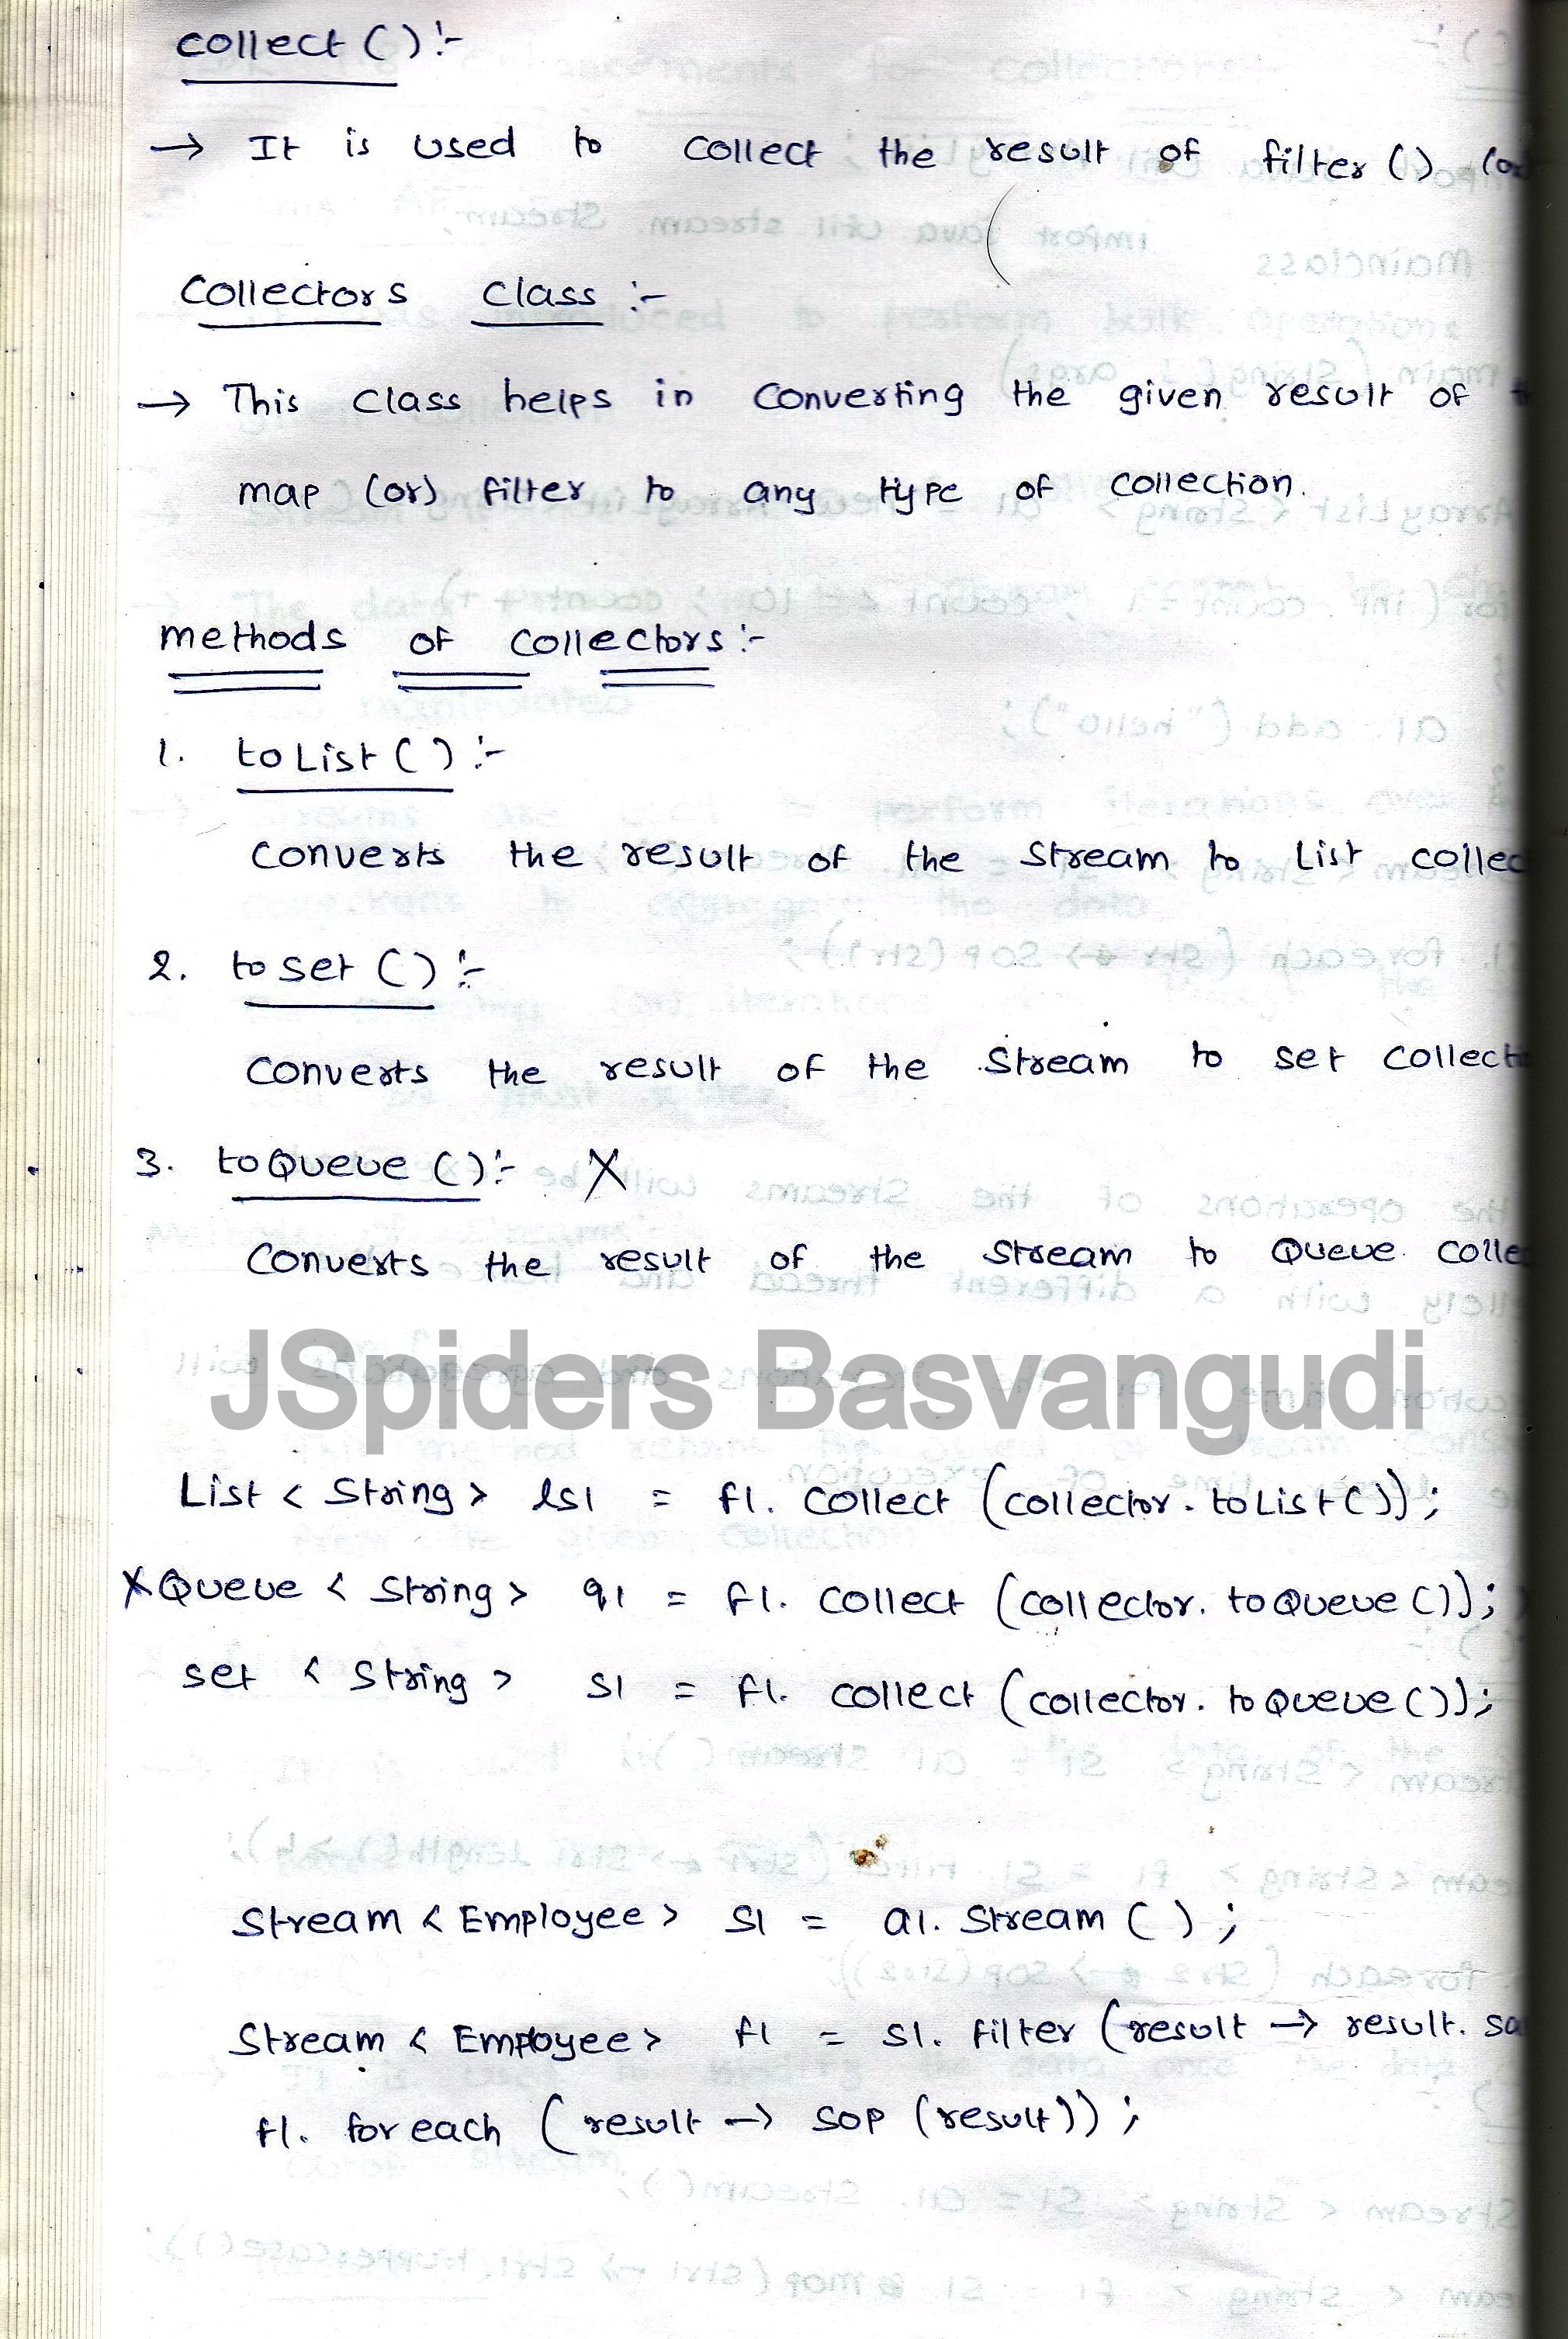 collect () :-
→ It is used to collect the result of filter () (or
Collectors class :-
→ This class helps in converting the given result of
map (or) filter to any type of collection.
methods of collectors :-
1. toList () :-
converts the result of the stream to List collec
2. to set () :-
converts the result of the stream to set collect
3. toQueue () :- X
converts the result of the stream to Queue colle
JSpiders Basvangudi
List < String > ls1 = f1. collect (collector. toList ());
X Queue < String > q1 = f1. collect (collector. toQueue ());
set < String > s1 = f1. collect (collector. toQueue ());
Stream < Employee > s1 = a1. stream () ;
Stream < Employee > f1 = s1. filter (result → result. sa
f1. for each (result → sop (result)) ;